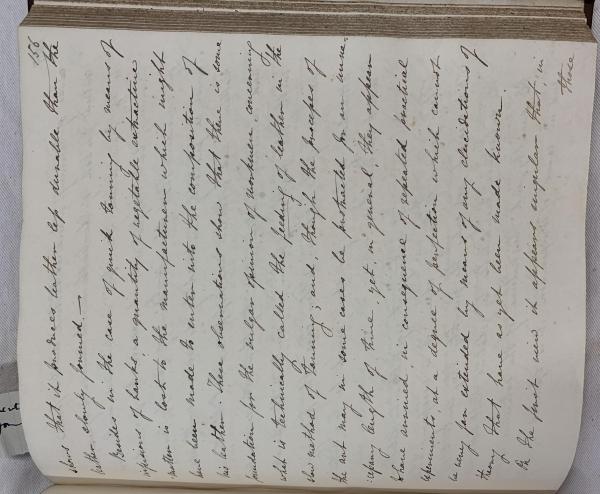 156
shows that it produces leather less durable than the
leather slowly formed. —
Besides in the case of quick tanning by means of
infusions of barks a quantity of vegetable extractive
matter is lost to the manufacturer which might
have been made to enter into the composition of
his leather. These observations show that there is some
foundation for the vulgar opinion of workmen concerning
what is technically called the feeding of leather in the
slow method of tanning; and, though the processes of
the art may in some cases be protracted for an unne-
cessary length of time, yet, in general they appear
to have arrived, in consequence of repeated practical
experiments, at a degree of perfection which cannot
be very far extended by means of any elucidations of
theory that have as yet been made known.
On the first view it appears singular that in
those